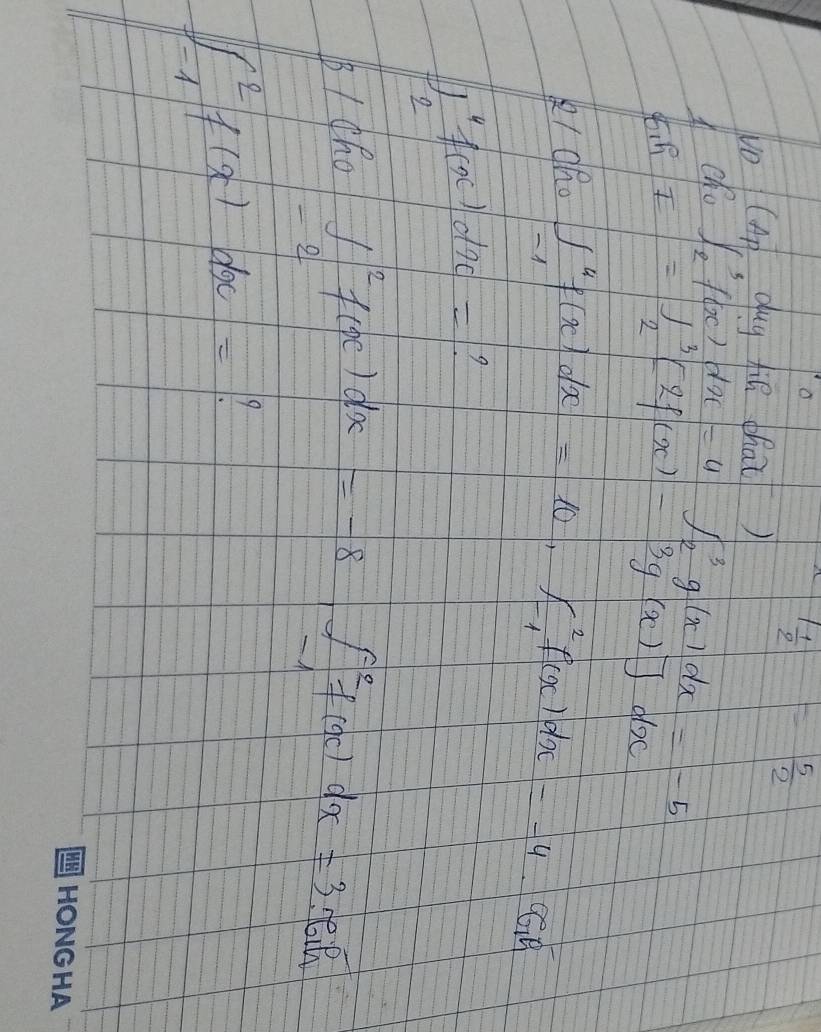 1/2 = 5/2
VD (Áp dụng tính chất)
1 Cho ∫₂³ f(x) dx = 4 ∫₂³ g(x) dx = -5
Tính I = ∫₂³ [2f(x) - 3g(x)] dx
2/ Cho ∫₋₁⁴ f(x) dx = 10, ∫₋₁² f(x) dx = -4. Tính
∫₂⁴ f(x) dx = ?
3/ Cho ∫₋₂² f(x) dx = -8, ∫₋₁⁻² f(x) dx = 3. Tính
∫₋₁² f(x) dx = ?
HONG HA